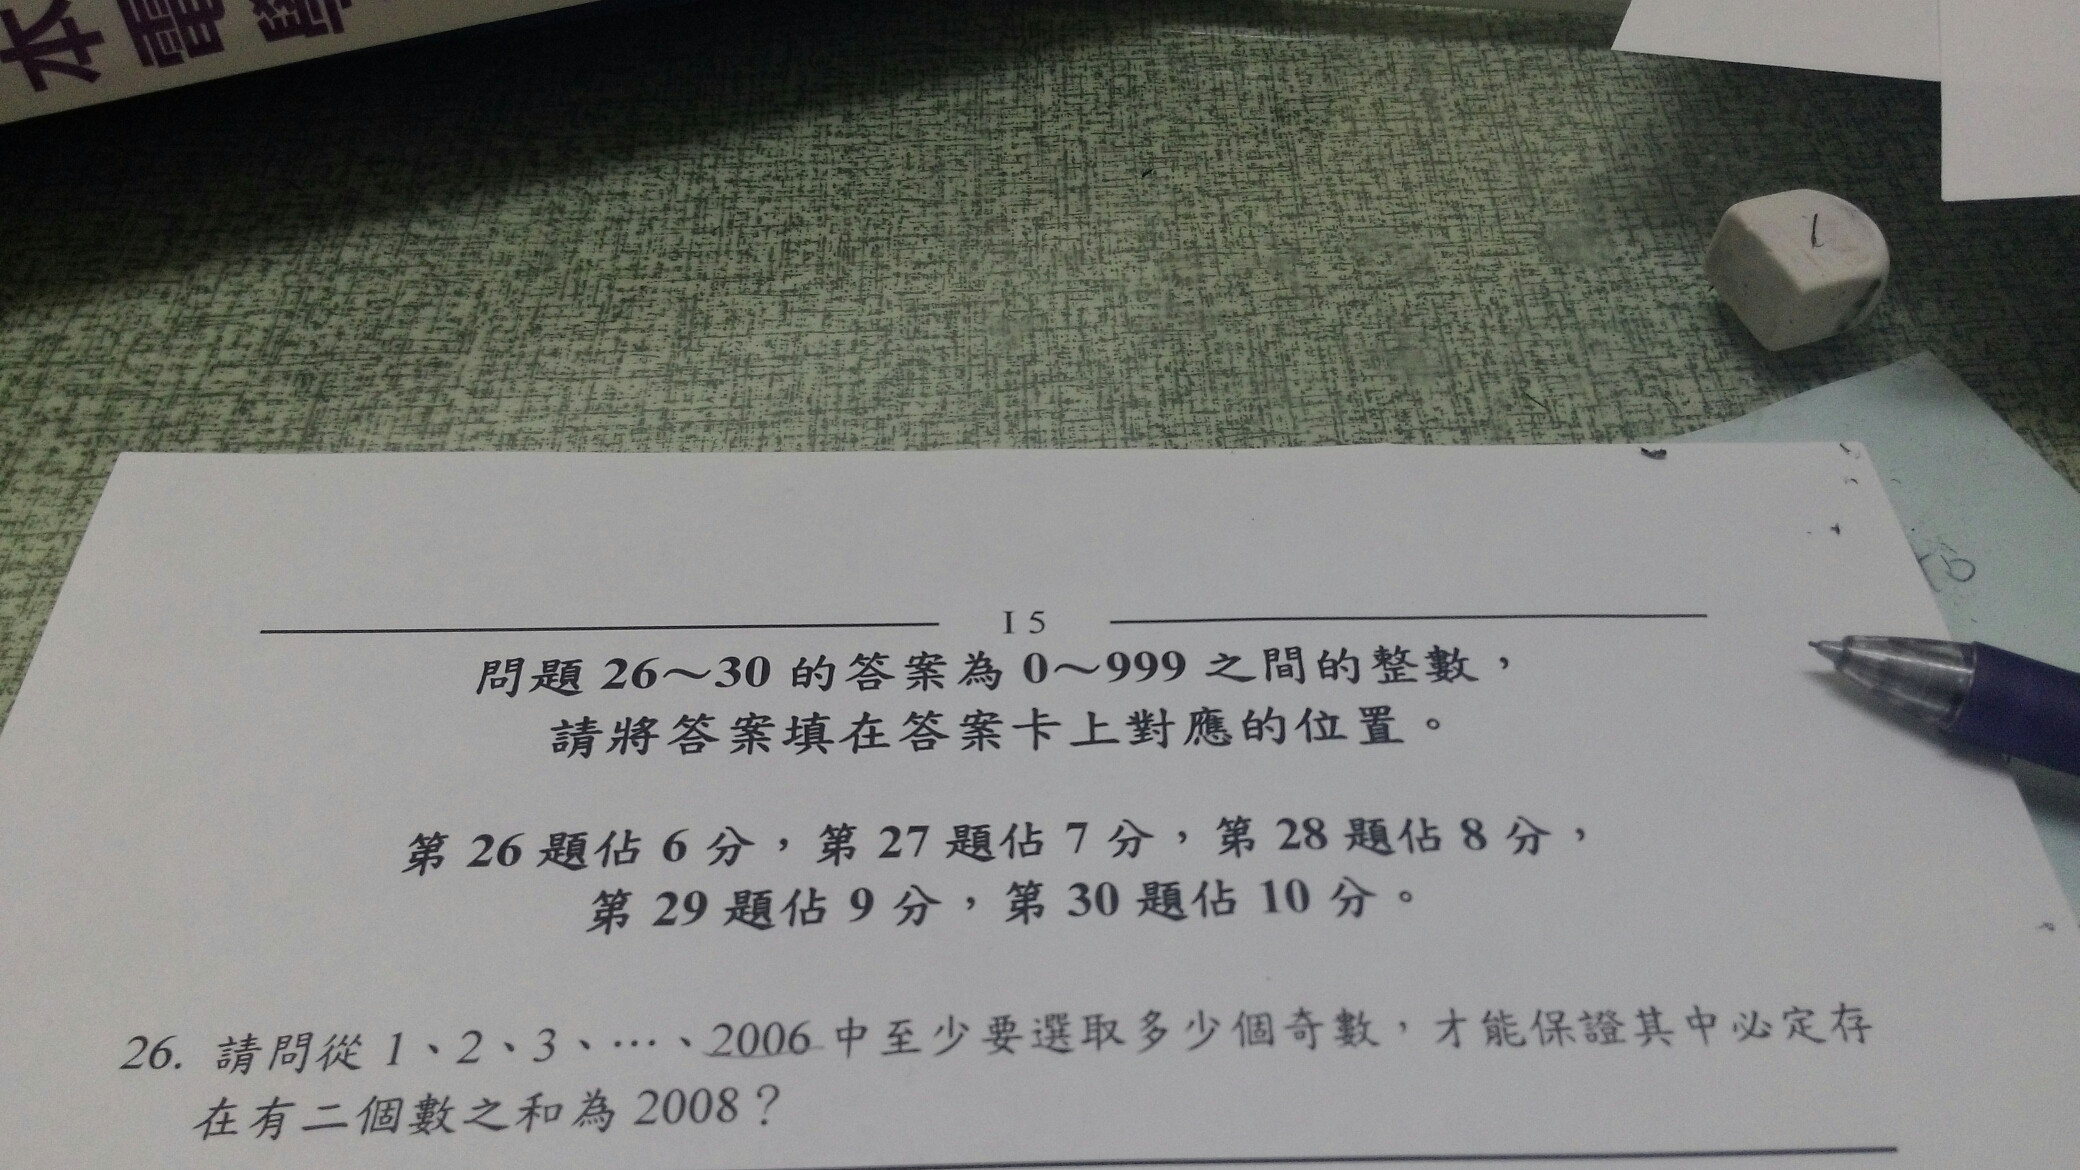 本
電
I 5
問題 26～30 的答案為 0～999 之間的整數，
請將答案填在答案卡上對應的位置。
第 26 題佔 6 分，第 27 題佔 7 分，第 28 題佔 8 分，
第 29 題佔 9 分，第 30 題佔 10 分。
26. 請問從 1、2、3、…、2006 中至少要選取多少個奇數，才能保證其中必定存
在有二個數之和為 2008？